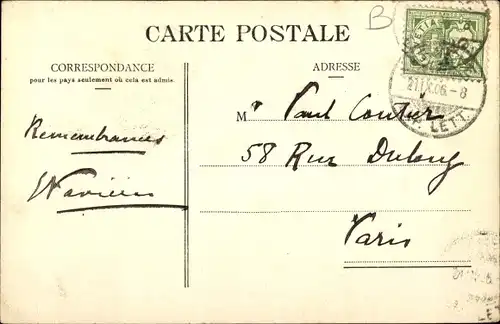 B
CARTE POSTALE
CORRESPONDANCE
pour les pays seulement où cela est admis.
ADRESSE
21.IX.06.-8
LETT.
M r Paul Coutier
58 Rue Dulong
Paris
Remembrances